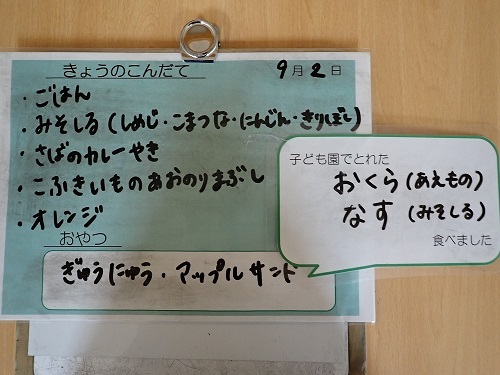 きょうのこんだて 9月2日
・ごはん
・みそしる(しめじ・こまつな・にんじん・きりぼし)
・さばのカレーやき
・こふきいものあおのりまぶし
・オレンジ
おやつ
ぎゅうにゅう・アップルサンド
子ども園でとれた
おくら(あえもの)
なす(みそしる)
食べました